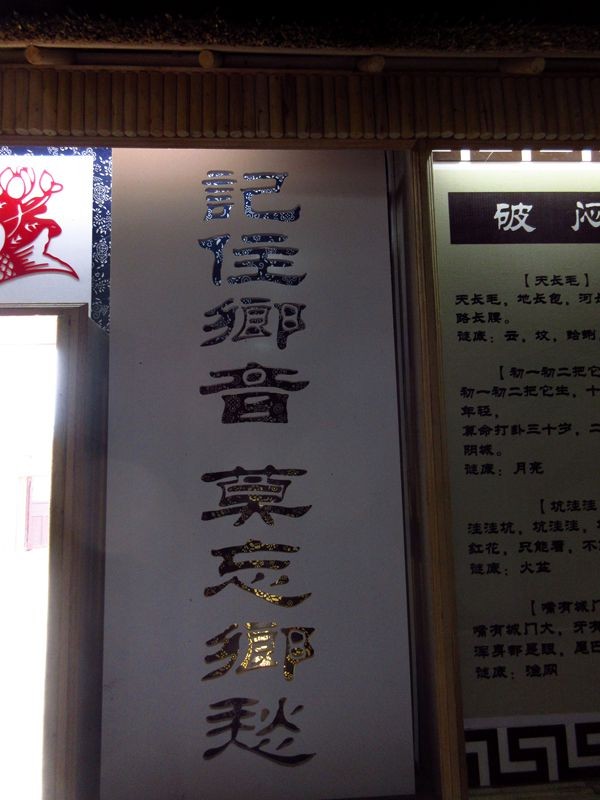 記住鄉音 莫忘鄉愁
破 闷
【天长毛】
天长毛，地长包，河长
路长腰。
谜底：云，坟，蛤蜊，
【初一初二把它
初一初二把它生，十
年轻，
算命打卦三十岁，二
阴城。
谜底：月亮
【坑洼洼
洼洼坑，坑洼洼，
红花，只能看，不
谜底：火盆
【嘴有城门
嘴有城门大，牙有
浑身都是眼，尾巴
谜底：渔网